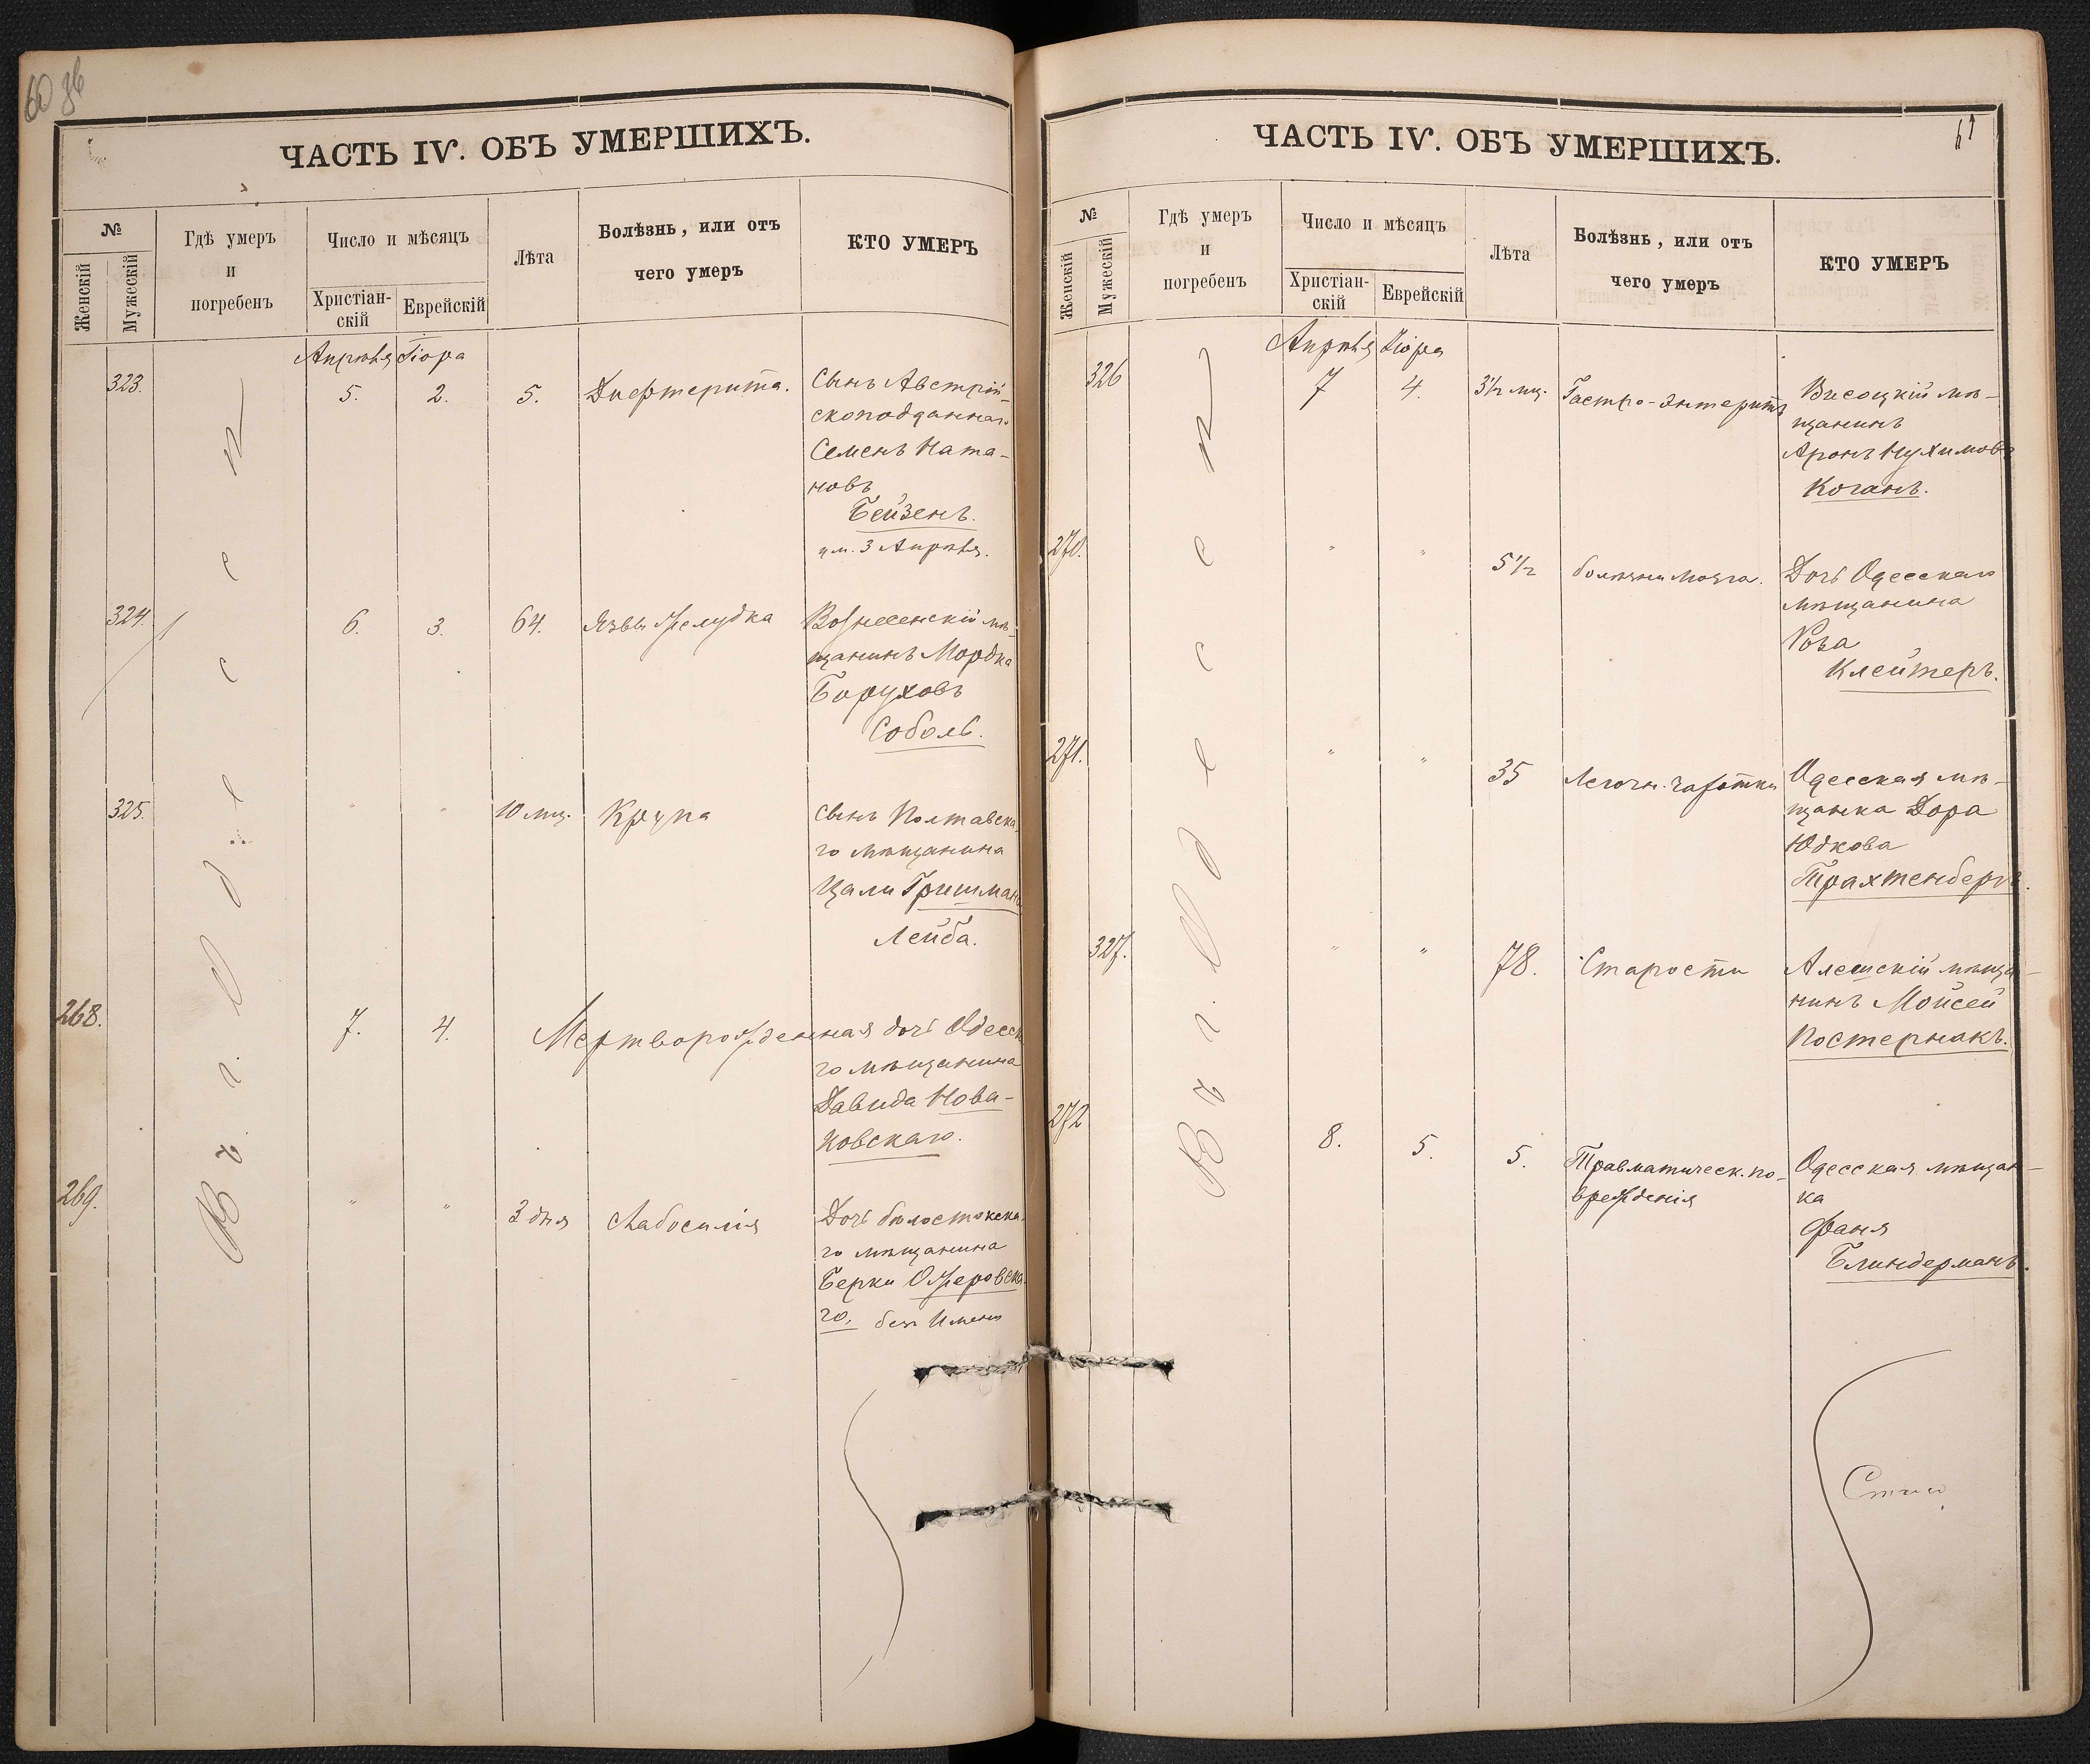 60 зв
ЧАСТЬ IV. ОБЪ УМЕРШИХЪ.
№
Женскій
Мужескій
Гдѣ умеръ
и
погребенъ
Число и мѣсяцъ
Христіан-
скій
Еврейскій
Лѣта
Болѣзнь, или отъ
чего умеръ
КТО УМЕРЪ
Въ г. Одессѣ
Апрѣля Ііора
323. 5. 2. 5. Дифтерита. Сынъ Австрій-
скоподданнаго
Семенъ Ната-
новъ
Бейзенъ.
ум. 3 Апрѣля.
324. 6. 3. 64. Язвы желудка Вознесенскій мѣ-
щанинъ Мордка
Боруховъ
Соболь.
325. " " 10 мц. Крупа Сынъ Полтавска-
го мѣщанина
Цали Гришмана
Лейба.
268. 7. 4. Мертворожденная дочь Одесска
го мѣщанина
Давида Нова-
ковскаго.
269. " " 3 дня Слабосилія Дочь бѣлостокска-
го мѣщанина
Берки Ожеровска-
го, безъ Имени
61
ЧАСТЬ IV. ОБЪ УМЕРШИХЪ.
№
Женскій
Мужескій
Гдѣ умеръ
и
погребенъ
Число и мѣсяцъ
Христіан-
скій
Еврейскій
Лѣта
Болѣзнь, или отъ
чего умеръ
КТО УМЕРЪ
Въ г. Одессѣ
Апрѣля Ііора
326 7 4. 3½ мц. Гастро-энтеритъ Высоцкій мѣ-
щанинъ
Аронъ Нухимовъ
Коганъ.
270. " " 5½ болѣзни мозга. Дочь Одесскаго
мѣщанина
Роза
Клейтеръ.
271. " " 35 Легочн. чахотки Одесская мѣ-
щанка Дора
Юдкова
Трахтенбергъ.
327. " " 78. Старости Алешскій мѣща-
нинъ Мойсей
Постернакъ.
272 8. 5. 5. Травматическ. по-
врежденія
Одесская мѣщан-
ка
Фаня
Блиндерманъ.